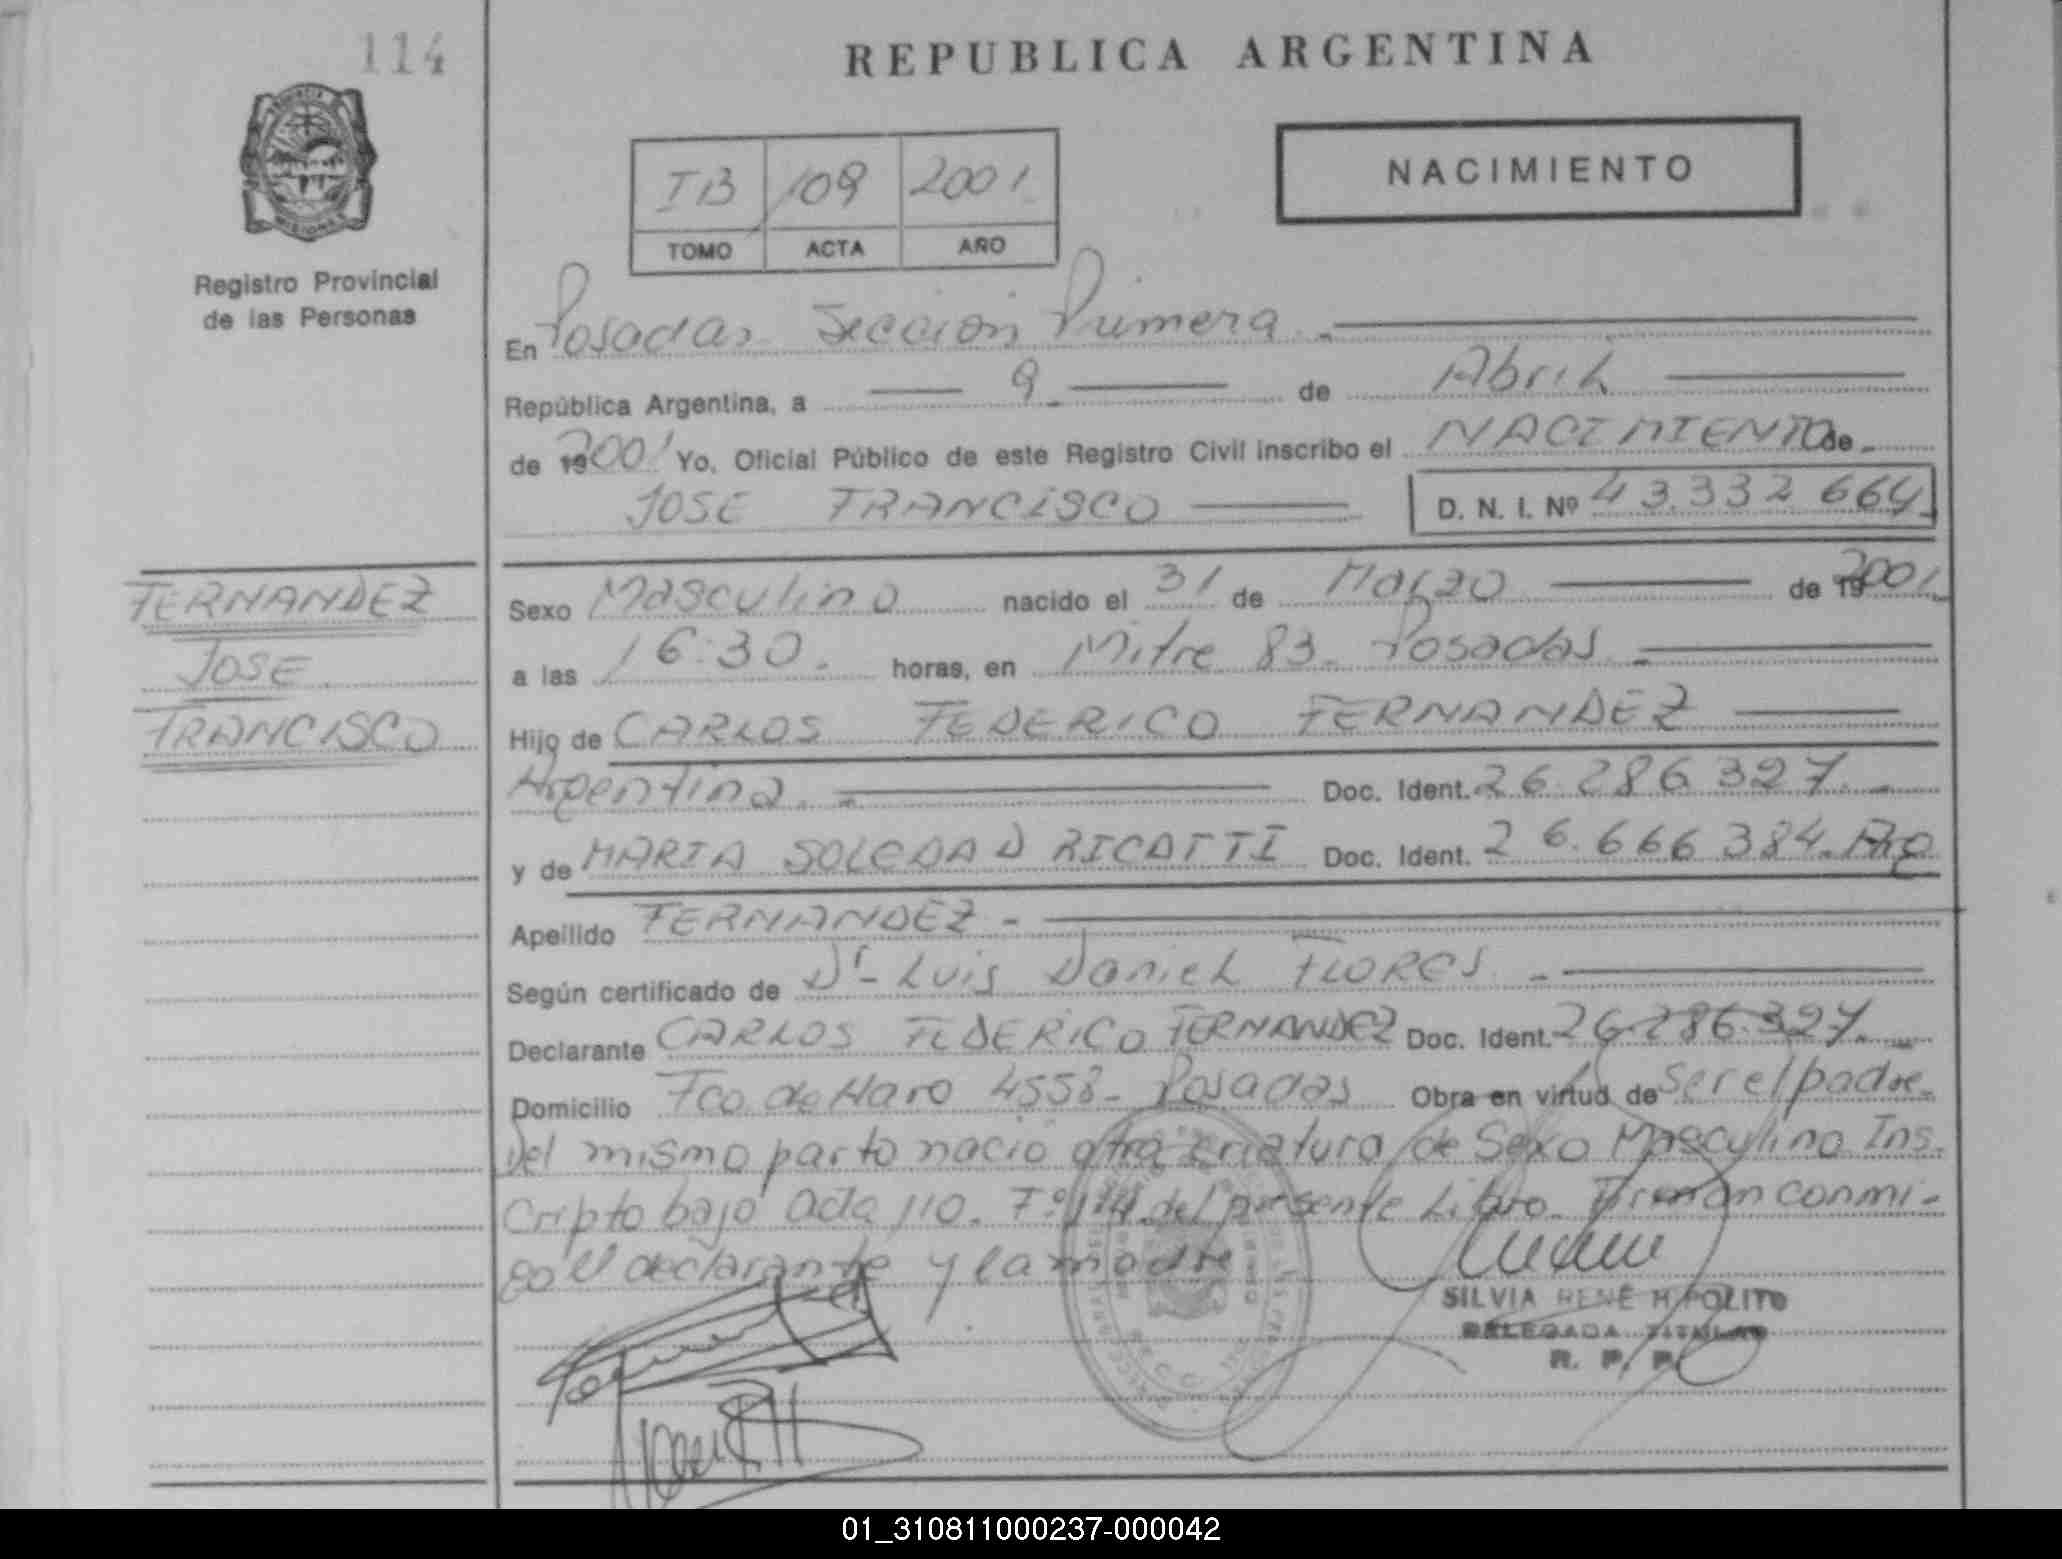 114
REPUBLICA ARGENTINA
NACIMIENTO
IB 109 2001
TOMO ACTA AÑO
Registro Provincial
de las Personas
En Posadas Sección Primera
República Argentina, a 9 de Abril
de 192001 Yo, Oficial Público de este Registro Civil inscribo el NACIMIENTO de
JOSE FRANCISCO D. N. I. Nº 43.332 664
FERNANDEZ
JOSE
FRANCISCO
Sexo Masculino nacido el 31 de Marzo de 192001
a las 16:30. horas, en Mitre 83. Posadas
Hijo de CARLOS FEDERICO FERNANDEZ
Argentina. Doc. Ident. 26.286.327.
y de MARIA SOLEDAD RICATTI Doc. Ident. 26.666 384. Arg
Apellido FERNANDEZ -
Según certificado de Dr- Luis Daniel FLORES
Declarante CARLOS FEDERICO FERNANDEZ Doc. Ident. 26.286.327.
Domicilio Fco. de Haro 4558- Posadas Obra en virtud de ser el padre.
Del mismo parto nació otra criatura de Sexo Masculino Ins-
cripto bajo acta 110. Fº 114 del presente Libro. Firman conmi-
go el declarante y la madre
SILVIA RENÉ HIPOLITO
DELEGADA TITULAR
R. P. P.
01_310811000237-000042